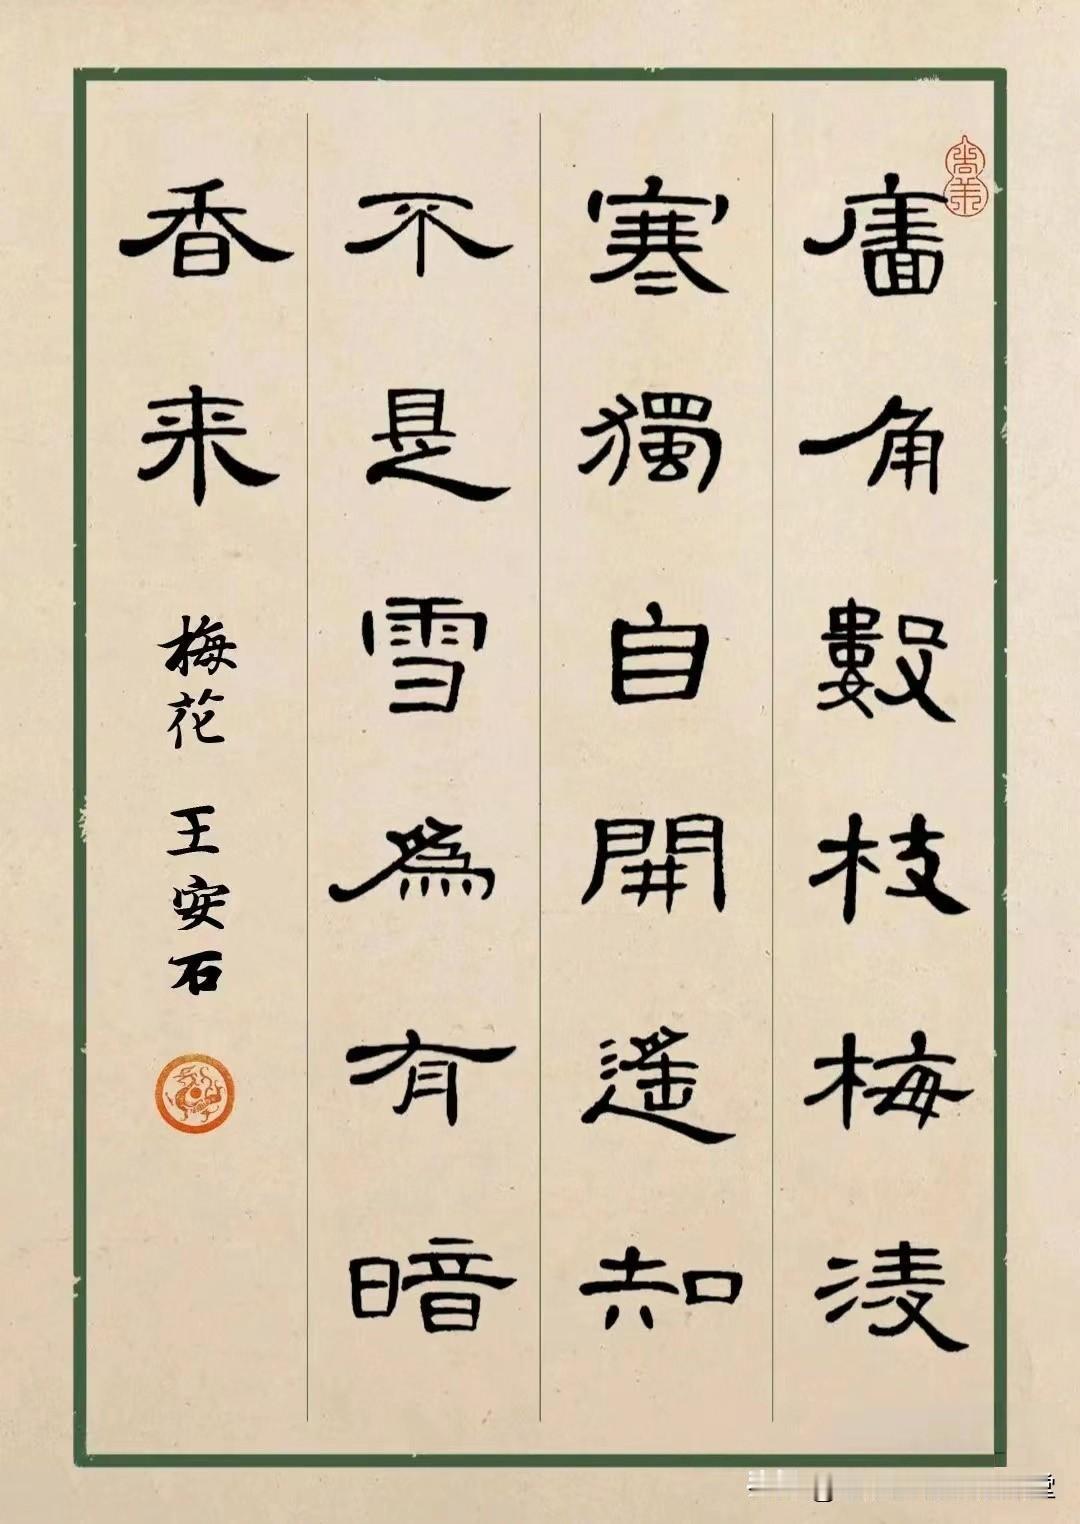 廧角數枝梅淩
寒獨自開遙知
不是雪爲有暗
香来
梅花 王安石
尚美